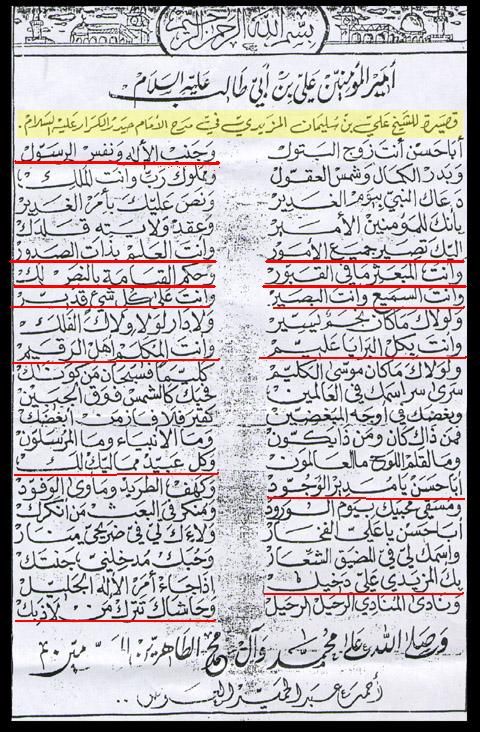 بسم الله الرحمن الرحيم
أمير المؤمنين علي بن أبي طالب عليه السلام
قصيدة للشيخ علي بن سليمان المزيدي في مدح الامام حيدر الكرار عليه السلام.
أبا حسن أنت زوج البتول وجنب الإله ونفس الرسول
وبدر الكمال وشمس العقول ومملوك رب وأنت الملك
دعاك النبي بيوم الغدير ونص عليك بأمر الغدير
بأنك للمؤمنين الأمير وعقد ولايته قلدك
إليك تصير جميع الأمور وأنت العليم بذات الصدور
وأنت المبعثر ما في القبور وحكم القيامة بالنص لك
وأنت السميع وأنت البصير وأنت على كل شيء قدير
ولولاك ما كان نجم يسير ولا دار لولا ولاك الفلك
وأنت بكل البرايا عليم وأنت المكلم أهل الرقيم
ولولاك ما كان موسى الكليم كليما فسبحان من كونك
سرى سر اسمك في العالمين فحبك كالشمس فوق الجبين
وبغضك في أوجه المبغضين كقير فلا فاز من أبغضك
فمن ذاك كان ومن ذا يكون وما الأنبياء وما المرسلون
وما القلم اللوح ما العالمون وكل عبيد مماليك لك
أبا حسن يا مدير الوجود وكهف الطريد ومأوى الوفود
ومسقي محبيك يوم الورود ومنكر في البعث من أنكرك
أبا حسن يا علي الفخار ولاءك لي في ضريحي منار
واسمك لي في المضيق الشعار وحبك مدخلني جنتك
بك المزيدي علي دخيل إذا جاء أمر الإله الجليل
ونادى المنادي الرحيل الرحيل وحاشاك تترك من لاذ بك
وصلى الله على محمد وآل محمد الطاهرين
أحمد عبد الحميد